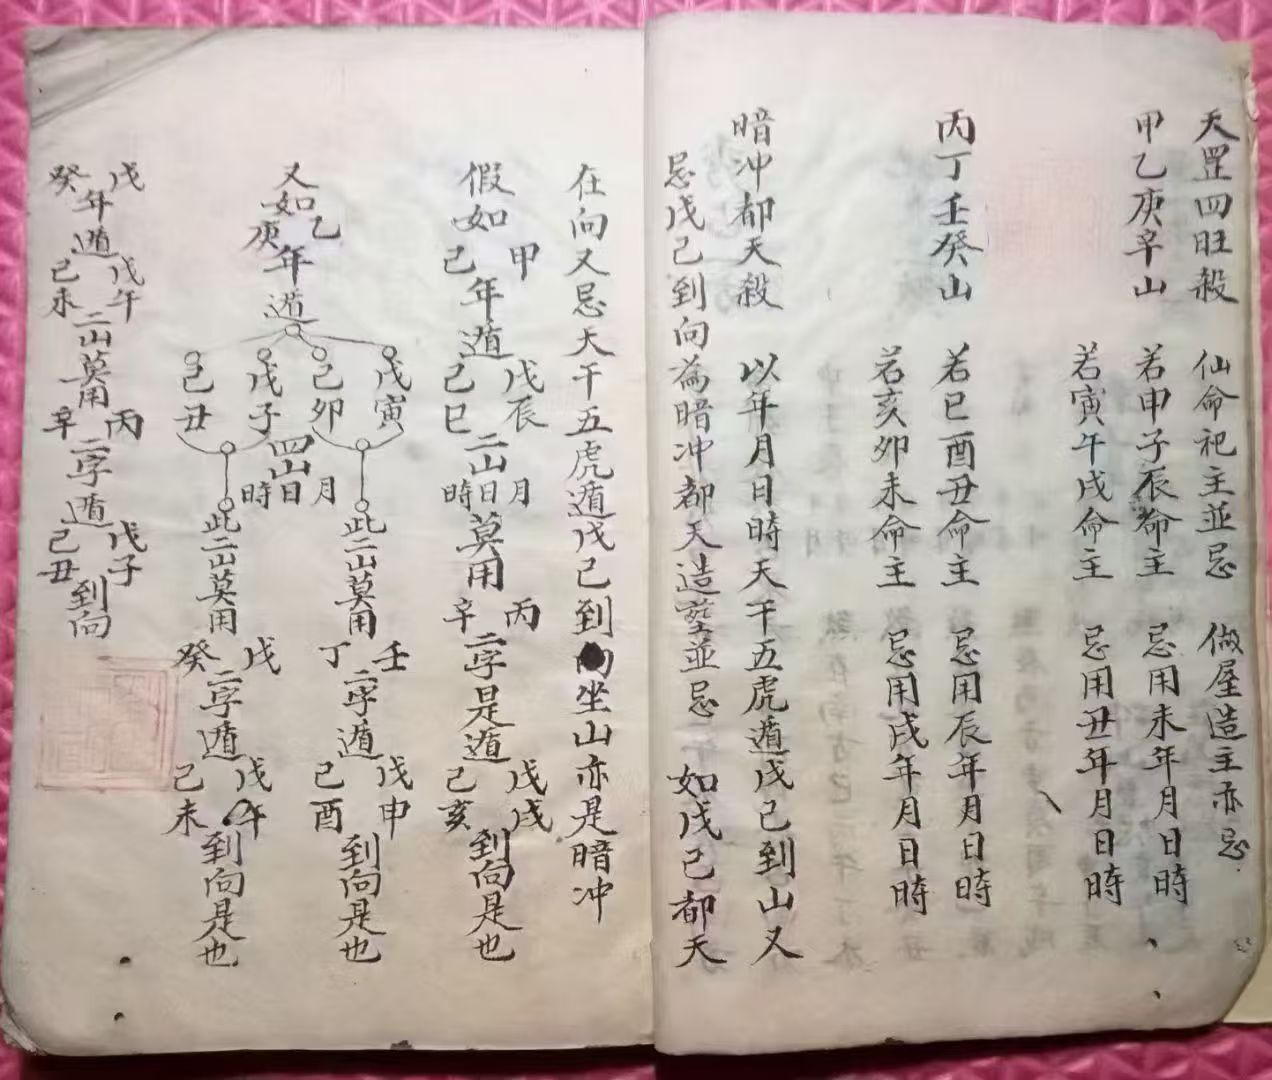 天罡四旺殺 仙命祀主並忌 做屋造主亦忌
甲乙庚辛山 若申子辰命主 忌用未年月日時
若寅午戌命主 忌用丑年月日時
丙丁壬癸山 若巳酉丑命主 忌用辰年月日時
若亥卯未命主 忌用戌年月日時
暗冲都天殺 以年月日時天干五虎遁戊己到山又
忌戊己到向為暗冲都天造塋並忌 如戊己都天
在向又忌天干五虎遁戊己到向坐山亦是暗冲
假如甲己年遁戊辰己巳二山月日時莫用丙辛二字是遁戊戌己亥到向是也
又如乙庚年遁
戊寅己卯戊子己丑四山月日時
此二山莫用壬丁二字遁戊申己酉到向是也
此二山莫用戊癸二字遁戊午己未到向是也
戊癸年遁戊午己未二山莫用丙辛二字遁戊子己丑到向